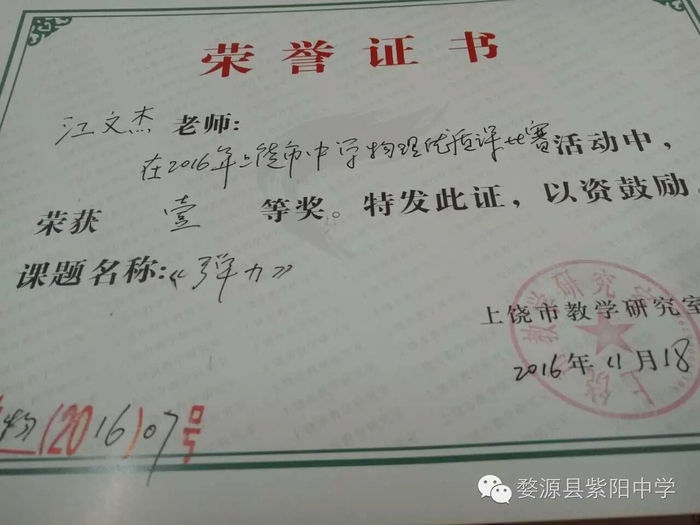 荣誉证书
江文杰 老师:
在2016年上饶市中学物理优质课比赛活动中,
荣获 壹 等奖。特发此证,以资鼓励
课题名称:《弹力》
上饶市教学研究室
2016年11月18
物(2016)07号
婺源县紫阳中学